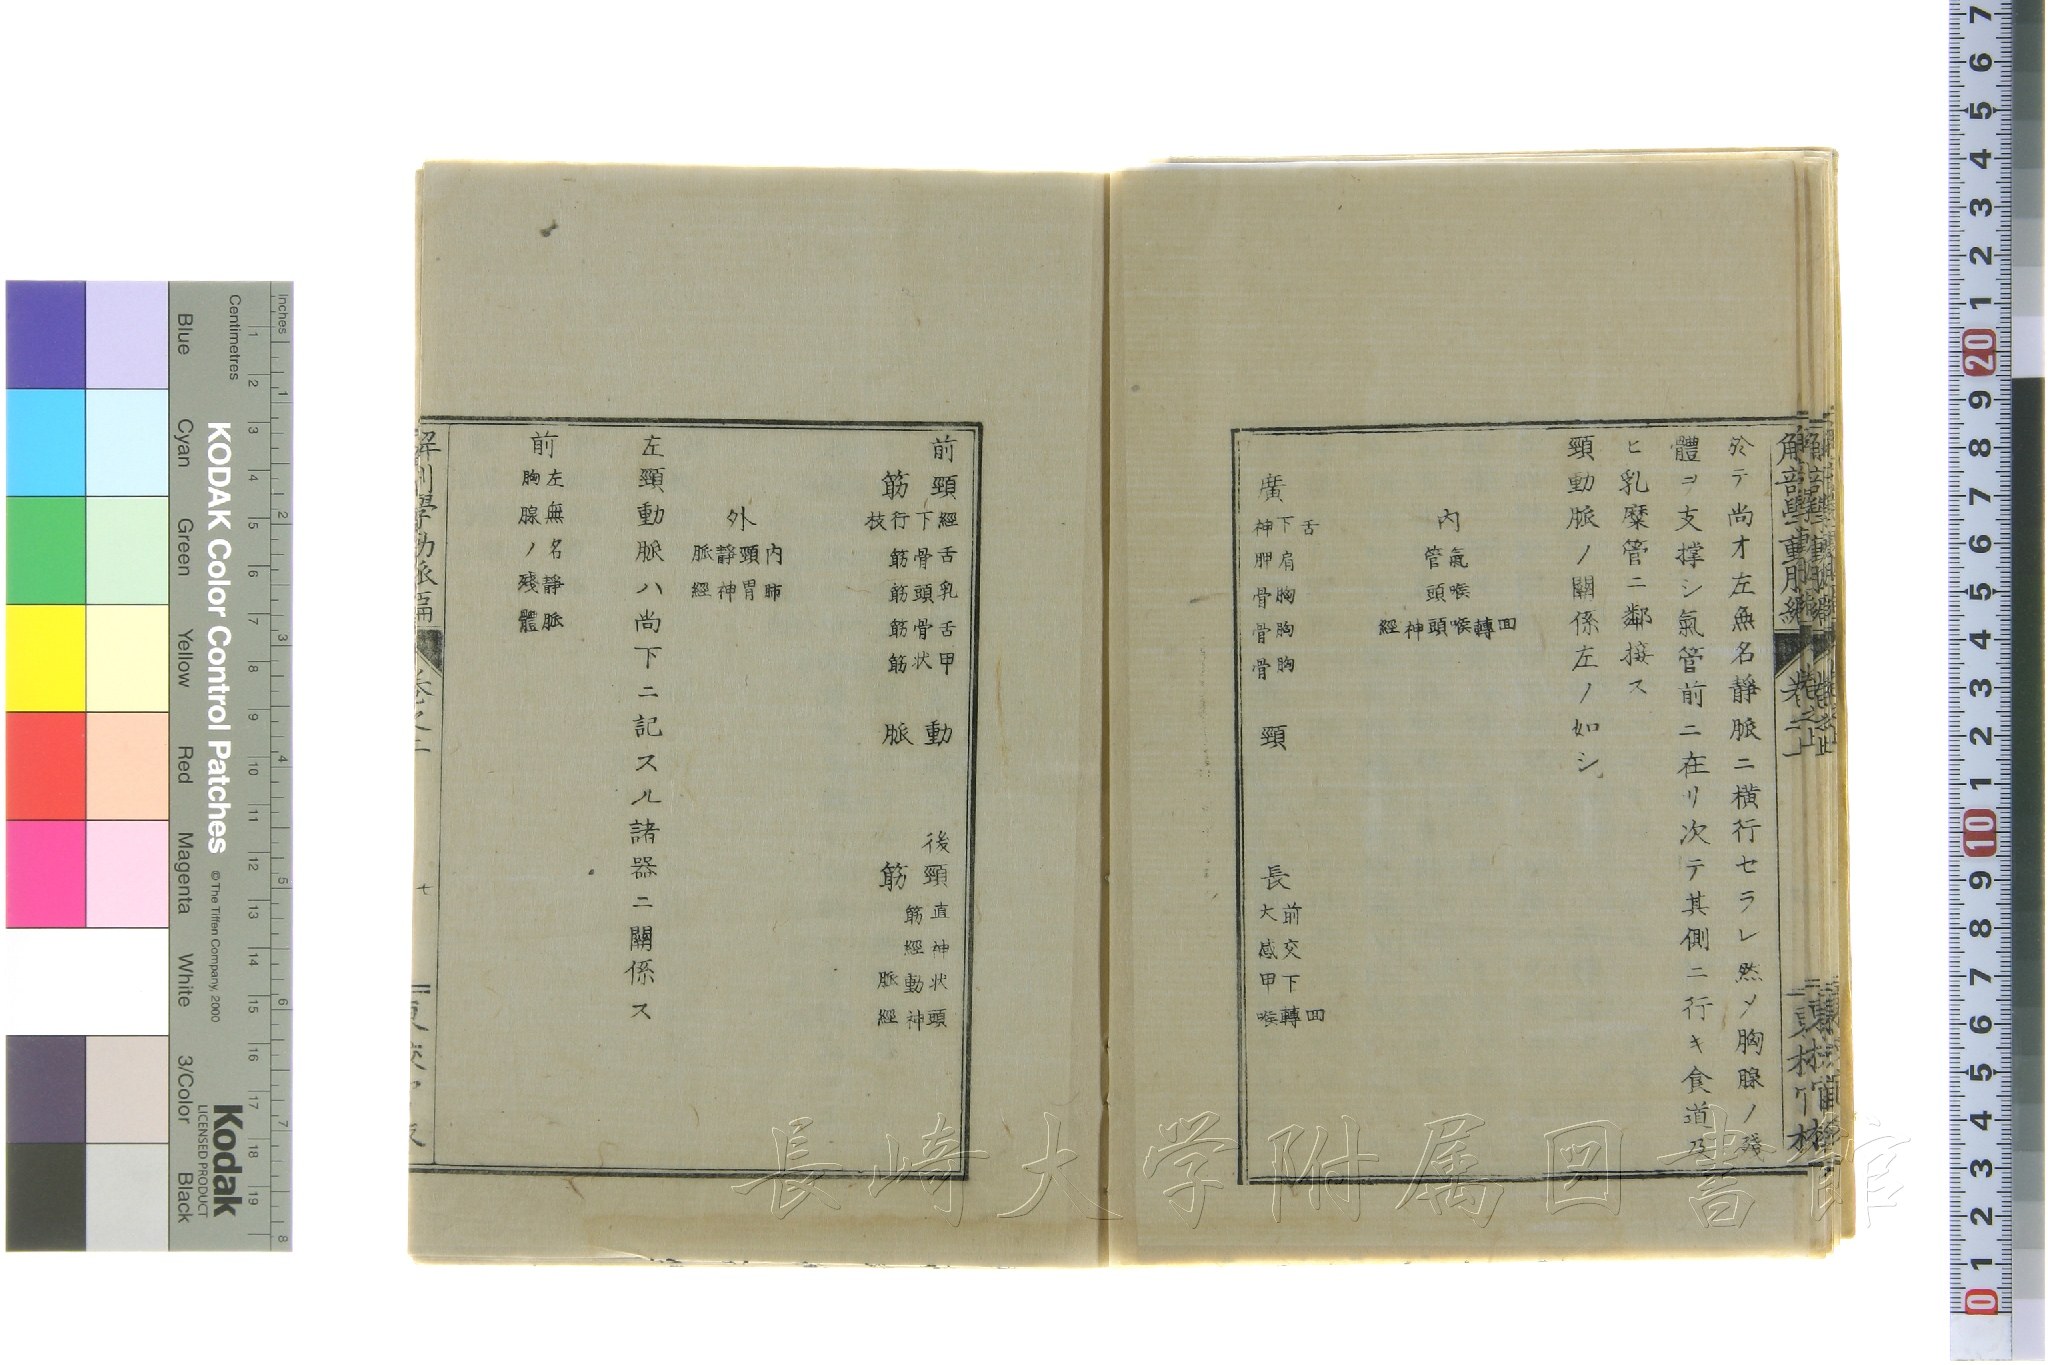 於テ尚オ左無名靜脈ニ横行セラレ然メ胸腺ノ殘
體ヲ支撑シ氣管前ニ在リ次テ其側ニ行キ食道乃
ヒ乳糜管ニ鄰接ス
頸動脈ノ關係左ノ如シ
內
氣管
喉頭
回轉喉頭神經
廣
舌下神
肩胛
胸骨
胸骨
胸骨
頸
長
前大
交感
下甲
回轉喉
前
頸筋
經下行枝
舌骨筋
乳頭筋
舌骨筋
甲状筋
動脈
後
頸筋
直筋
神經
状動脈
頭神經
外
內頸靜脈
肺胃神經
左頸動脈ハ尚下ニ記スル諸器ニ關係ス
前
左無名靜脈
胸腺ノ殘體
七
長崎大学附属図書館
KODAK Color Control Patches
© The Tiffen Company, 2000
Kodak
LICENSED PRODUCT
Inches
Centimetres
Blue
Cyan
Green
Yellow
Red
Magenta
White
3/Color
Black